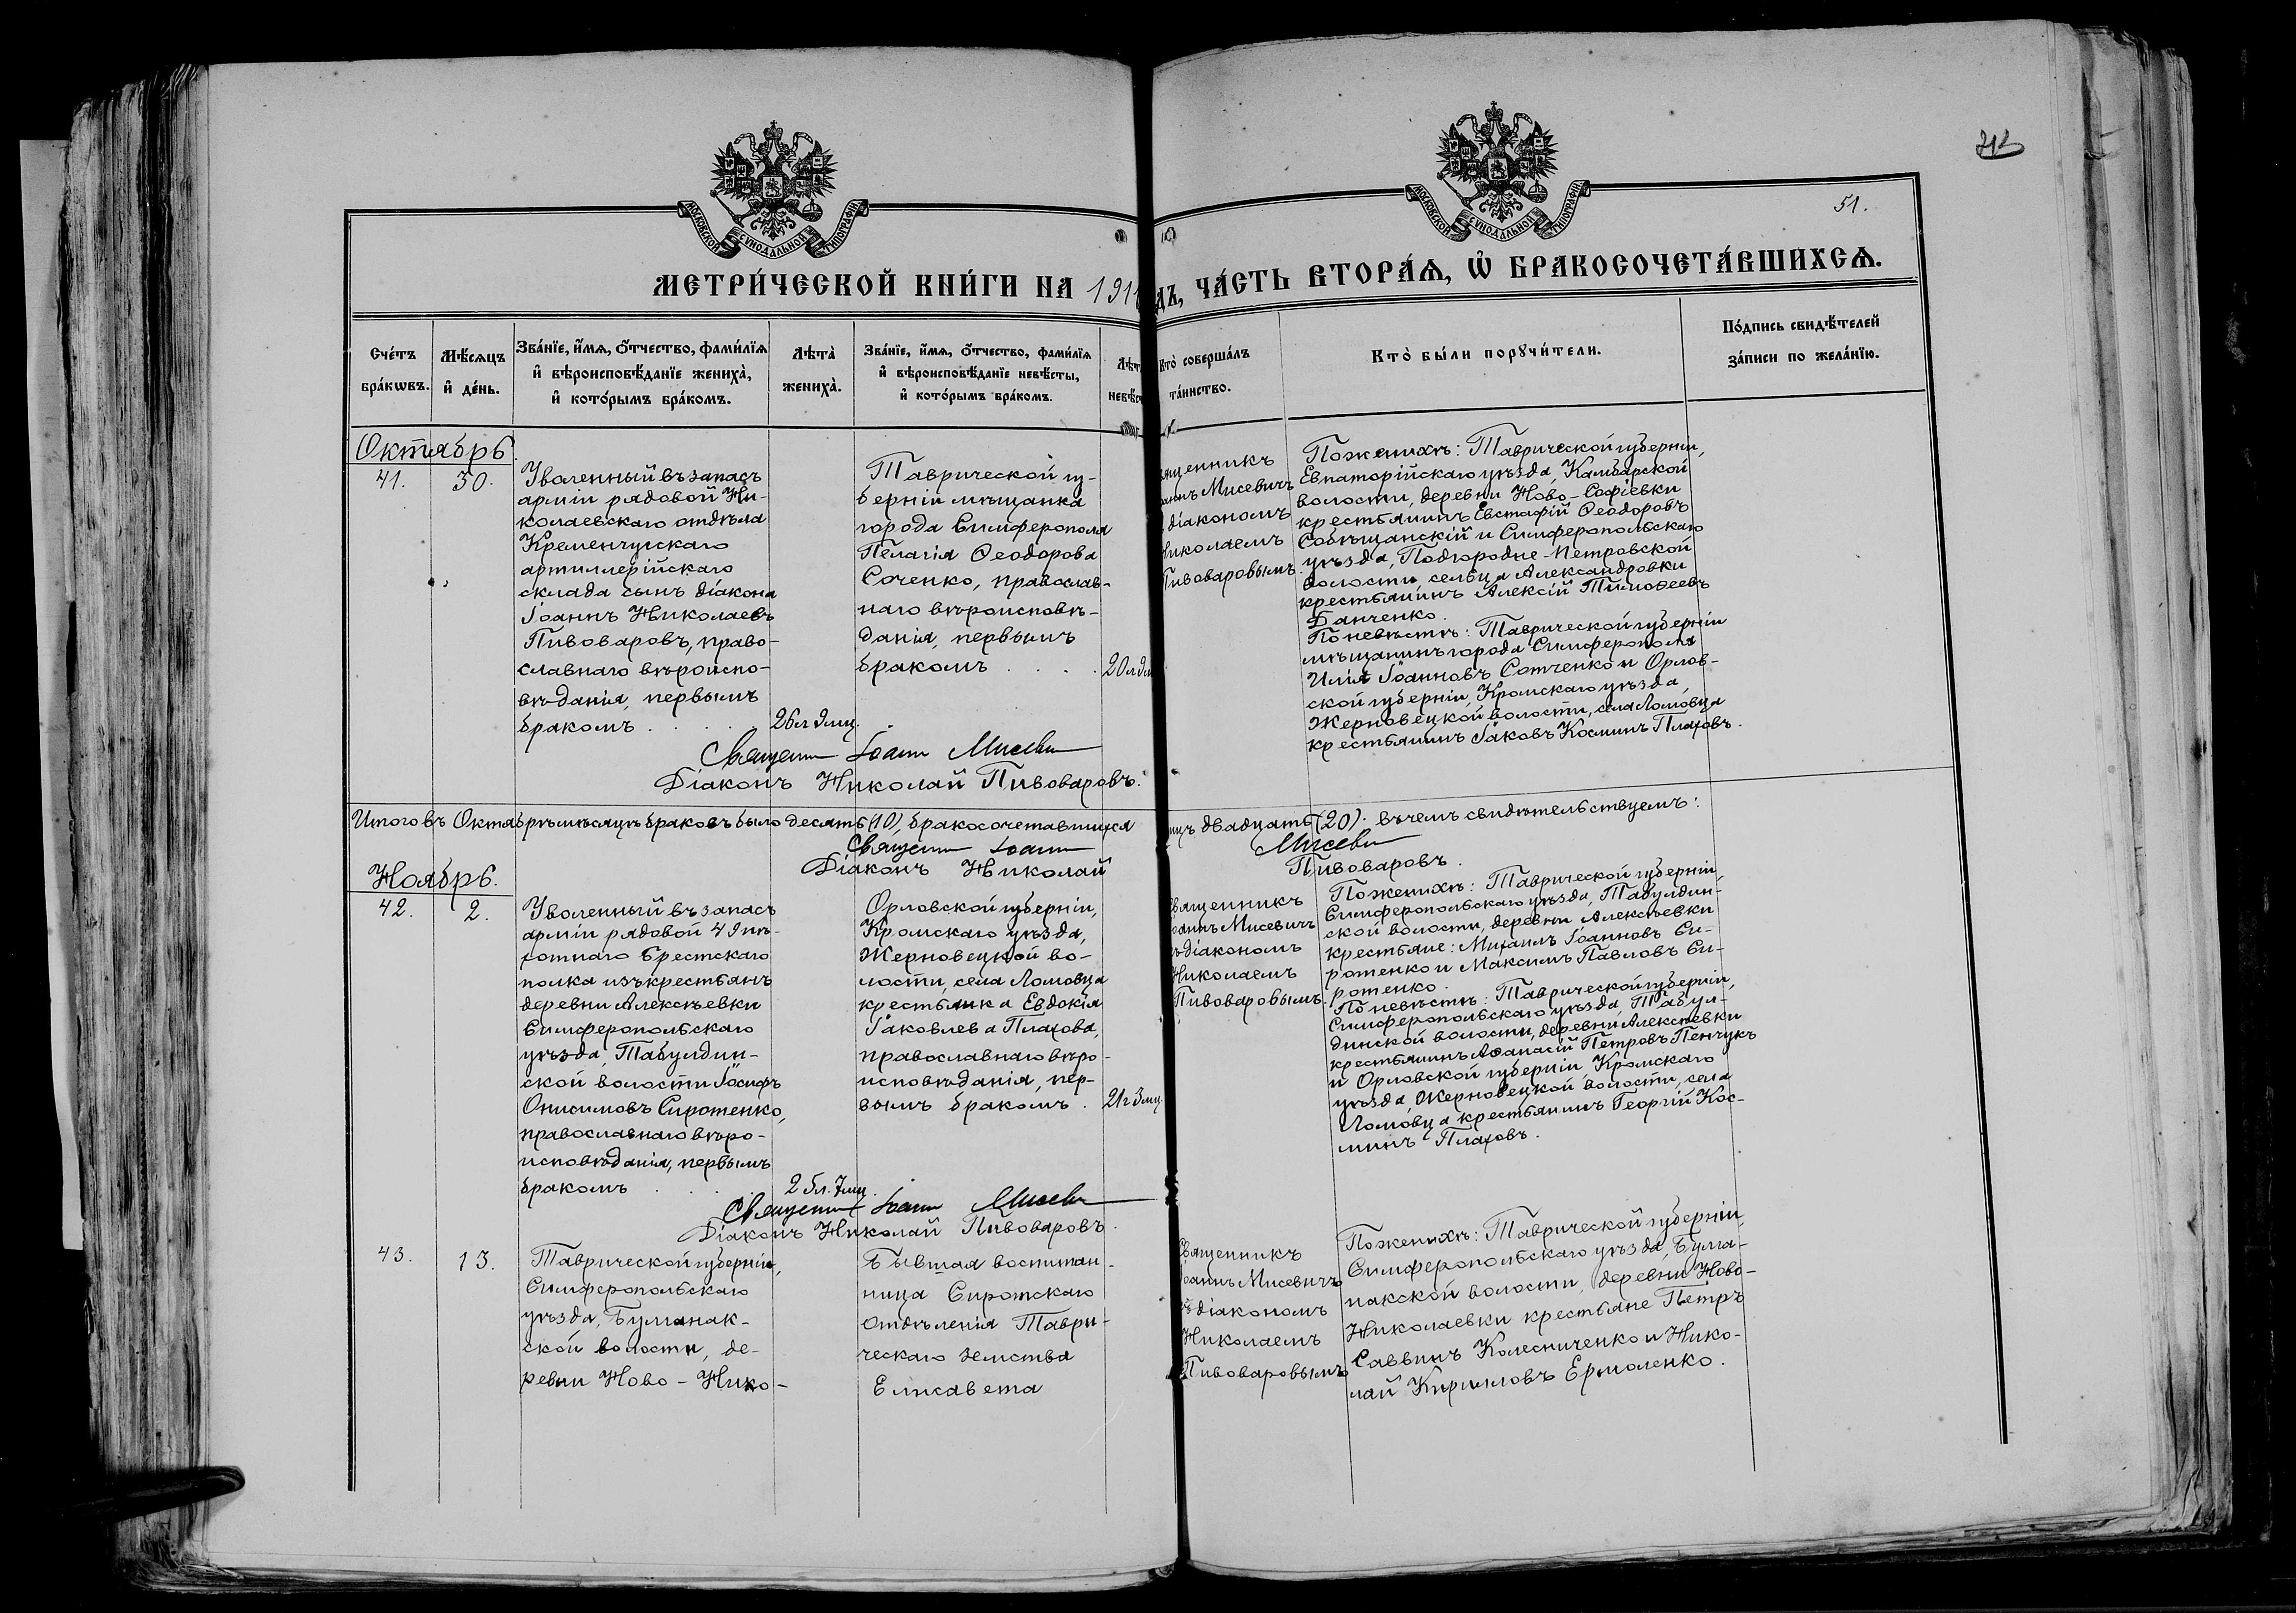 212
51.
МОСКОВСКОЙ СѴНОДАЛЬНОЙ ТИПОГРАФІИ
МОСКОВСКОЙ СѴНОДАЛЬНОЙ ТИПОГРАФІИ
МЕТРИ́ЧЕСКОЙ КНИ́ГИ НА 1911
ДЪ, ЧА́СТЬ ВТОРА́Ѧ, Ѽ БРАКОСОЧЕТА́ВШИХСѦ.
Сче́тъ
бра́кѡвъ.
Мѣ́сѧцъ
и҆ де́нь.
Зва́нїе, и҆́мѧ, о҆́тчество, фами́лїѧ
и҆ вѣроисповѣ́данїе жениха̀,
и҆ кото́рымъ бра́комъ.
Лѣта̀
жениха̀.
Зва́нїе, и҆́мѧ, о҆́тчество, фами́лїѧ
и҆ вѣроисповѣ́данїе невѣ́сты,
и҆ кото́рымъ бра́комъ.
Лѣт
невѣ́с
Кто̀ соверша́лъ
та́инство.
Кто̀ бы́ли порꙋчи́тели.
По́дпись свидѣ́телей
за́писи по жела́нїю.
Октябрь.
41.
30.
Уволенный въ запасъ
арміи рядовой Ни-
колаевскаго отдѣла
Кременчугскаго
артиллерійскаго
склада сынъ діакона
Іоаннъ Николаевъ
Пивоваровъ, право-
славнаго вѣроиспо-
вѣданія, первымъ
бракомъ . . . .
26 л 9 мц.
Таврической гу-
берніи мѣщанка
города Симферополя
Пелагія Ѳеодорова
Соченко, православ-
наго вѣроисповѣ-
данія, первымъ
бракомъ . . .
20 л 9 м
ященникъ
аннъ Мисевичъ
діакономъ
Николаемъ
Пивоваровымъ.
По женихѣ: Таврической губерніи,
Евпаторійскаго уѣзда, Камбарской
волости, деревни Ново-Софіевки
крестьянинъ Евстафій Ѳеодоровъ
Собѣщанскій и Симферопольскаго
уѣзда, Подгородне-Петровской
волости, сельца Александровки
крестьянинъ Алексій Тимоѳеевъ
Данченко.
По невѣстѣ: Таврической губерніи
мѣщанинъ города Симферополя
Илія Іоанновъ Сотченко и Орлов-
ской губерніи, Кромскаго уѣзда,
Жерновецкой волости, села Ломовца
крестьянинъ Іаковъ Косминъ Плаховъ.
Священникъ Іоаннъ Мисевичъ
Діаконъ Николай Пивоваровъ.
Итого въ Октябрѣ мѣсяцѣ браковъ было десять (10), бракосочетавшихся
лицъ двадцать (20). въ чемъ свидѣтельствуемъ:
Священникъ Іоаннъ Мисевичъ
Діаконъ Николай Пивоваровъ.
Ноябрь.
42.
2.
Уволенный въ запасъ
арміи рядовой 49 пѣ-
хотнаго Брестскаго
полка изъ крестьянъ
деревни Алексѣевки
Симферопольскаго
уѣзда, Табулдин-
ской волости Іосифъ
Онисимовъ Сиротенко,
православнаго вѣро-
исповѣданія, первымъ
бракомъ . . .
25 л. 7 мц.
Орловской губерніи,
Кромскаго уѣзда,
Жерновецкой во-
лости, села Ломовца
крестьянка Евдокія
Іаковлева Плахова,
православнаго вѣро-
исповѣданія, пер-
вымъ бракомъ .
21 г 3 мц
Священникъ
оаннъ Мисевичъ
съ діакономъ
Николаемъ
Пивоваровымъ.
По женихѣ: Таврической губерніи,
Симферопольскаго уѣзда, Табулдин-
ской волости, деревни Алексѣевки
крестьяне: Михаилъ Іоанновъ Си-
ротенко и Максимъ Павловъ Си-
ротенко.
По невѣстѣ: Таврической губерніи,
Симферопольскаго уѣзда, Табул-
динской волости, деревни Алексѣевки
крестьянинъ Аѳанасій Петровъ Пенчукъ
и Орловской губерніи, Кромскаго
уѣзда, Жерновецкой волости, села
Ломовца крестьянинъ Георгій Кос-
минъ Плаховъ.
Священникъ Іоаннъ Мисевичъ
Діаконъ Николай Пивоваровъ.
43.
13.
Таврической губерніи,
Симферопольскаго
уѣзда, Булганак-
ской волости, де-
ревни Ново-Нико-
Бывшая воспитан-
ница Сиротскаго
Отдѣленія Таври-
ческаго Земства
Елисавета
Священникъ
оаннъ Мисевичъ
съ діакономъ
Николаемъ
Пивоваровымъ
По женихѣ: Таврической губерніи,
Симферопольскаго уѣзда, Булга-
накской волости, деревни Ново-
Николаевки крестьяне Петръ
Саввинъ Колесниченко и Нико-
лай Кирилловъ Ермоленко.